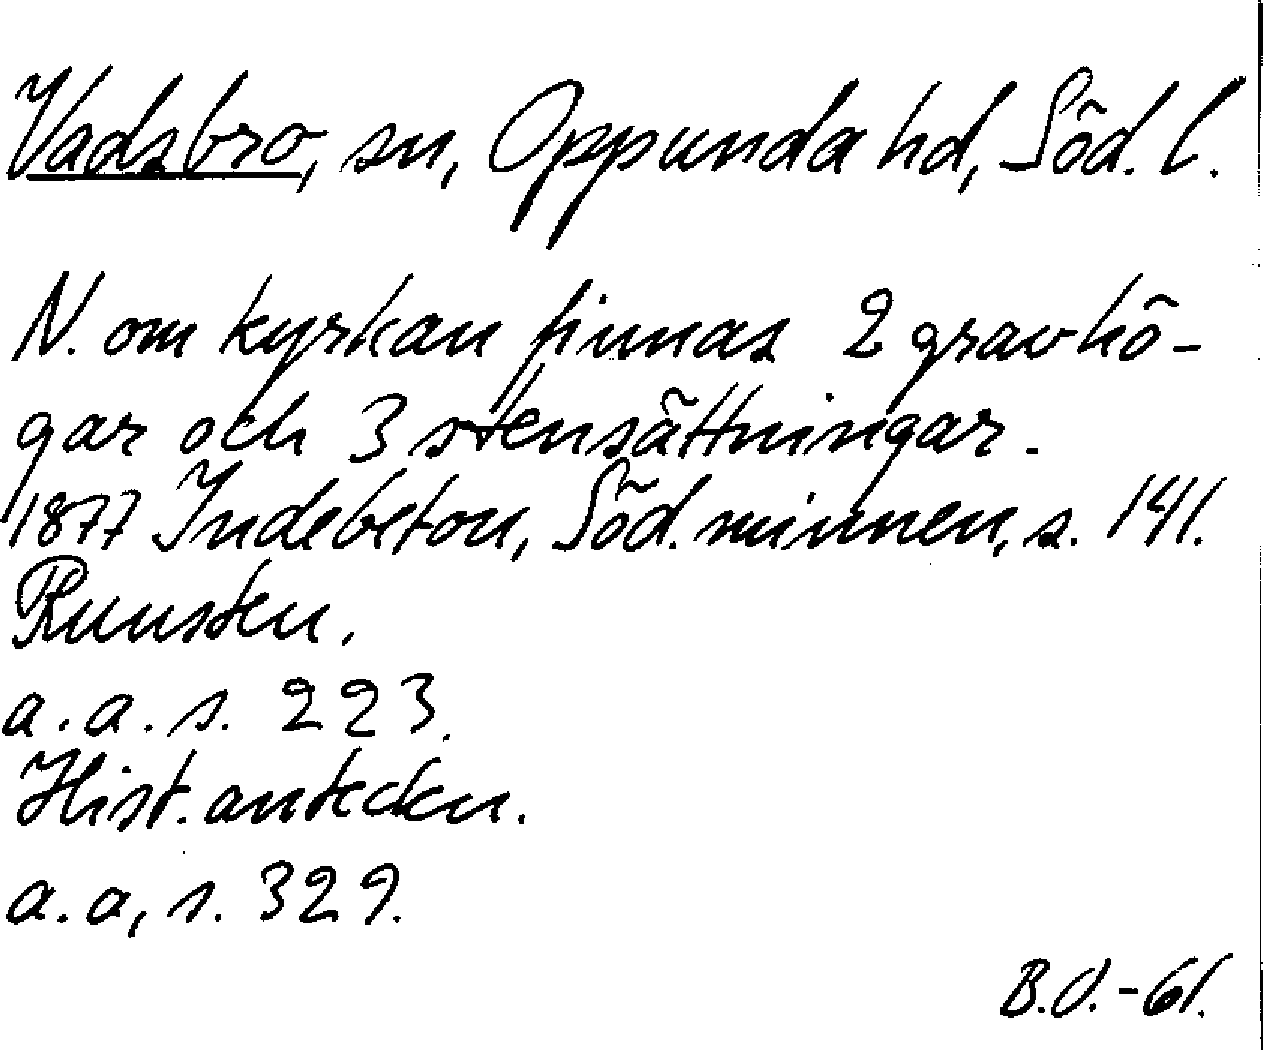 Vadsbro, sn, Oppunda hd, Söd. l.
N. om kyrkan finnas 2 gravhö-
gar och 3 stensättningar.
1877 Indebetou, Söd. minnen, s. 141.
Runsten.
a. a. s. 223.
Hist. anteckn.
a. a, s. 329.
B.O. - 61.